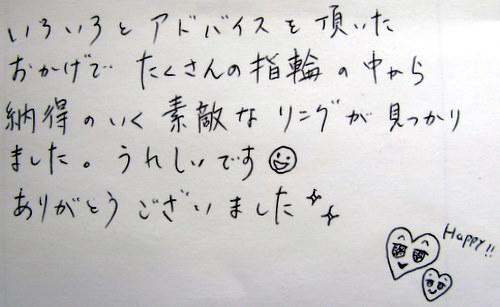 いろいろとアドバイスを頂いた
おかげで たくさんの指輪の中から
納得のいく素敵なリングが見つかり
ました。うれしいです
ありがとうございました
Happy!!